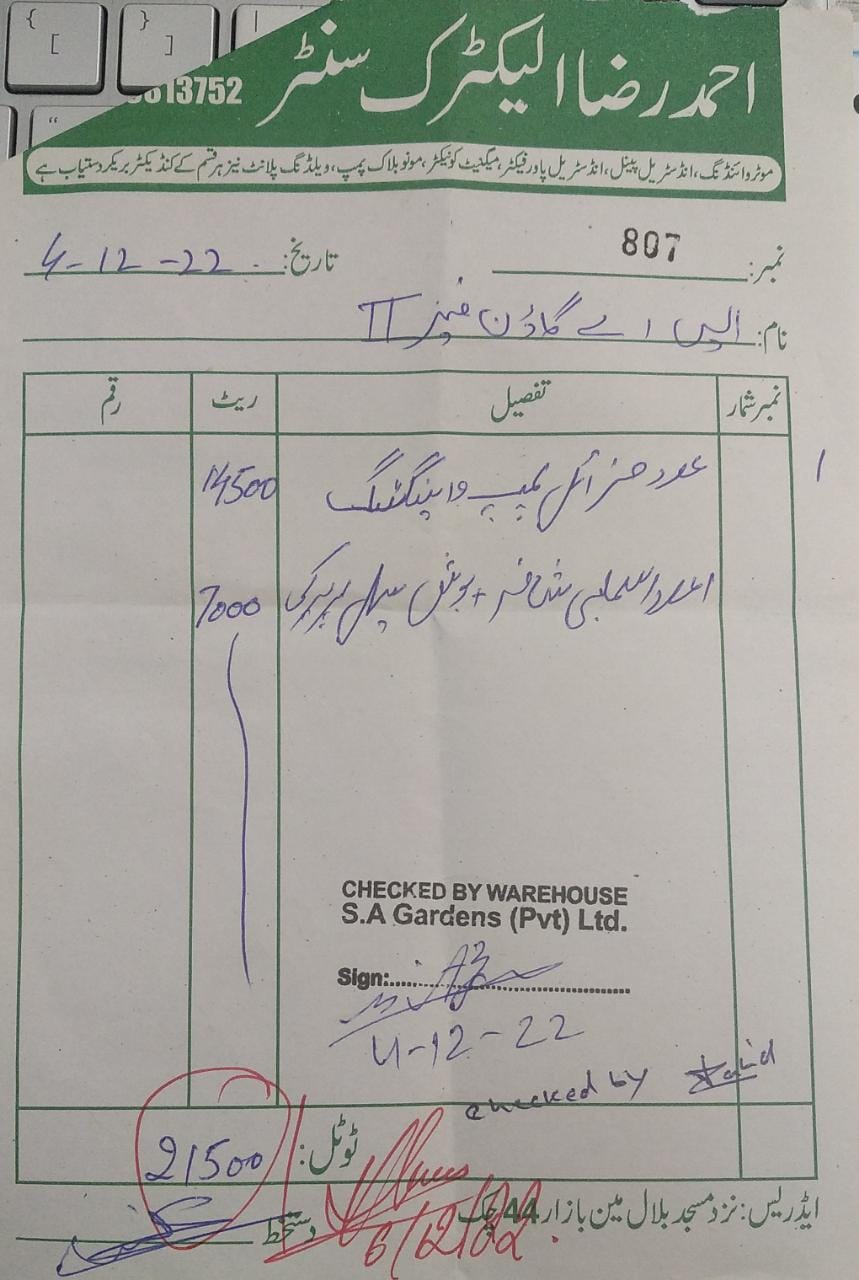 { [ } ] | “
احمد رضا الیکٹرک سنٹر
813752
موٹر وائنڈنگ، انڈسٹریل پینل، انڈسٹریل پاور فیکٹر، میگنیٹ کونیکٹر، مونو بلاک پمپ، ویلڈنگ پلانٹ نیز ہر قسم کے کنڈیکٹر بریکر دستیاب ہے
نمبر: 807 تاریخ: 4-12-22
نام: ایس اے گارڈن فیز II
نمبر شمار تفصیل ریٹ رقم
1 عدد پمپ 14500
عدد + بوش 7000
CHECKED BY WAREHOUSE
S.A Gardens (Pvt) Ltd.
Sign:
4-12-22
checked by
ٹوٹل: 21500
ایڈریس: نزد مسجد بلال مین بازار 44 چک دستخط
6/12/22